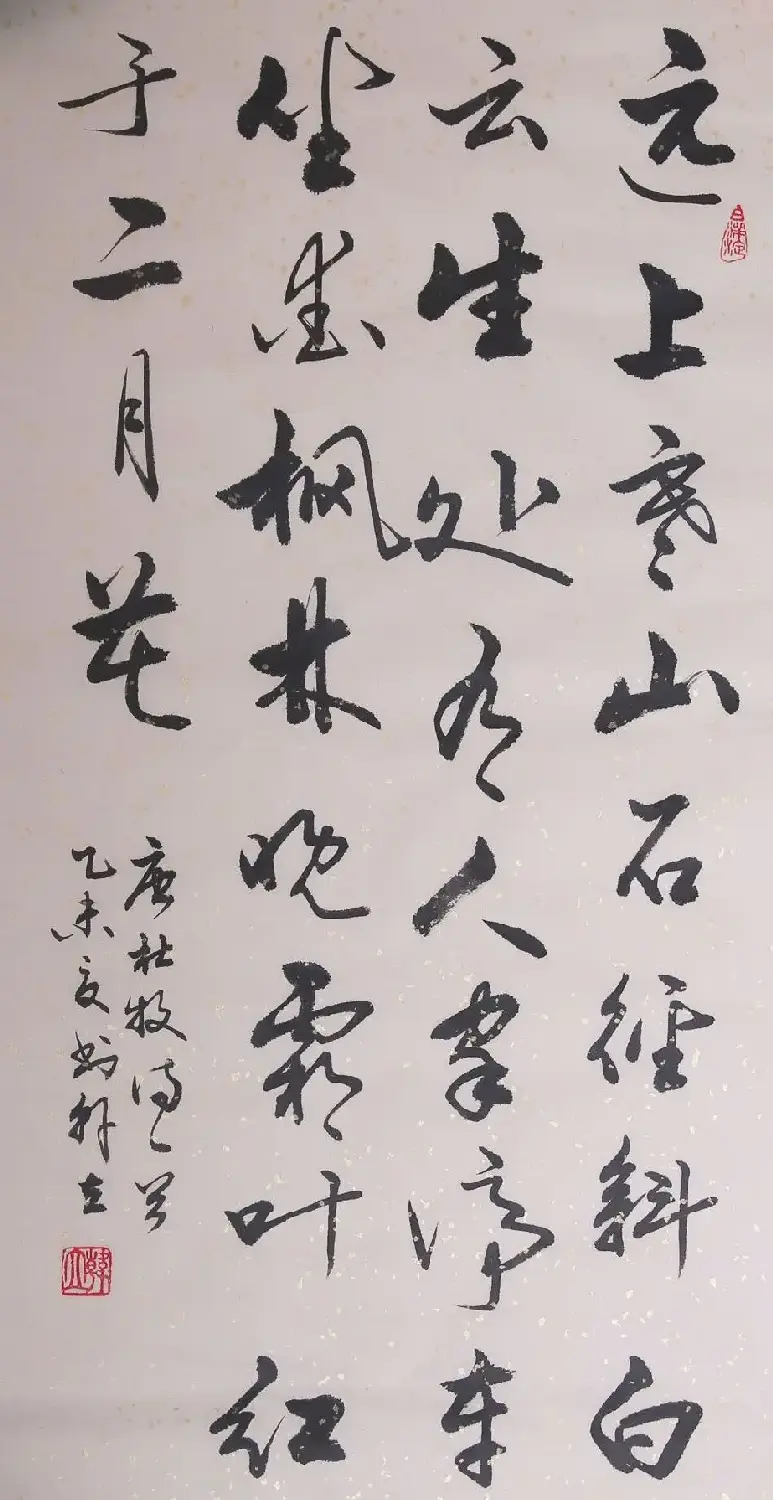 远上寒山石径斜白
云生处有人家停车
坐爱枫林晚霜叶红
于二月花
唐杜牧诗一首
乙未夏书韩立